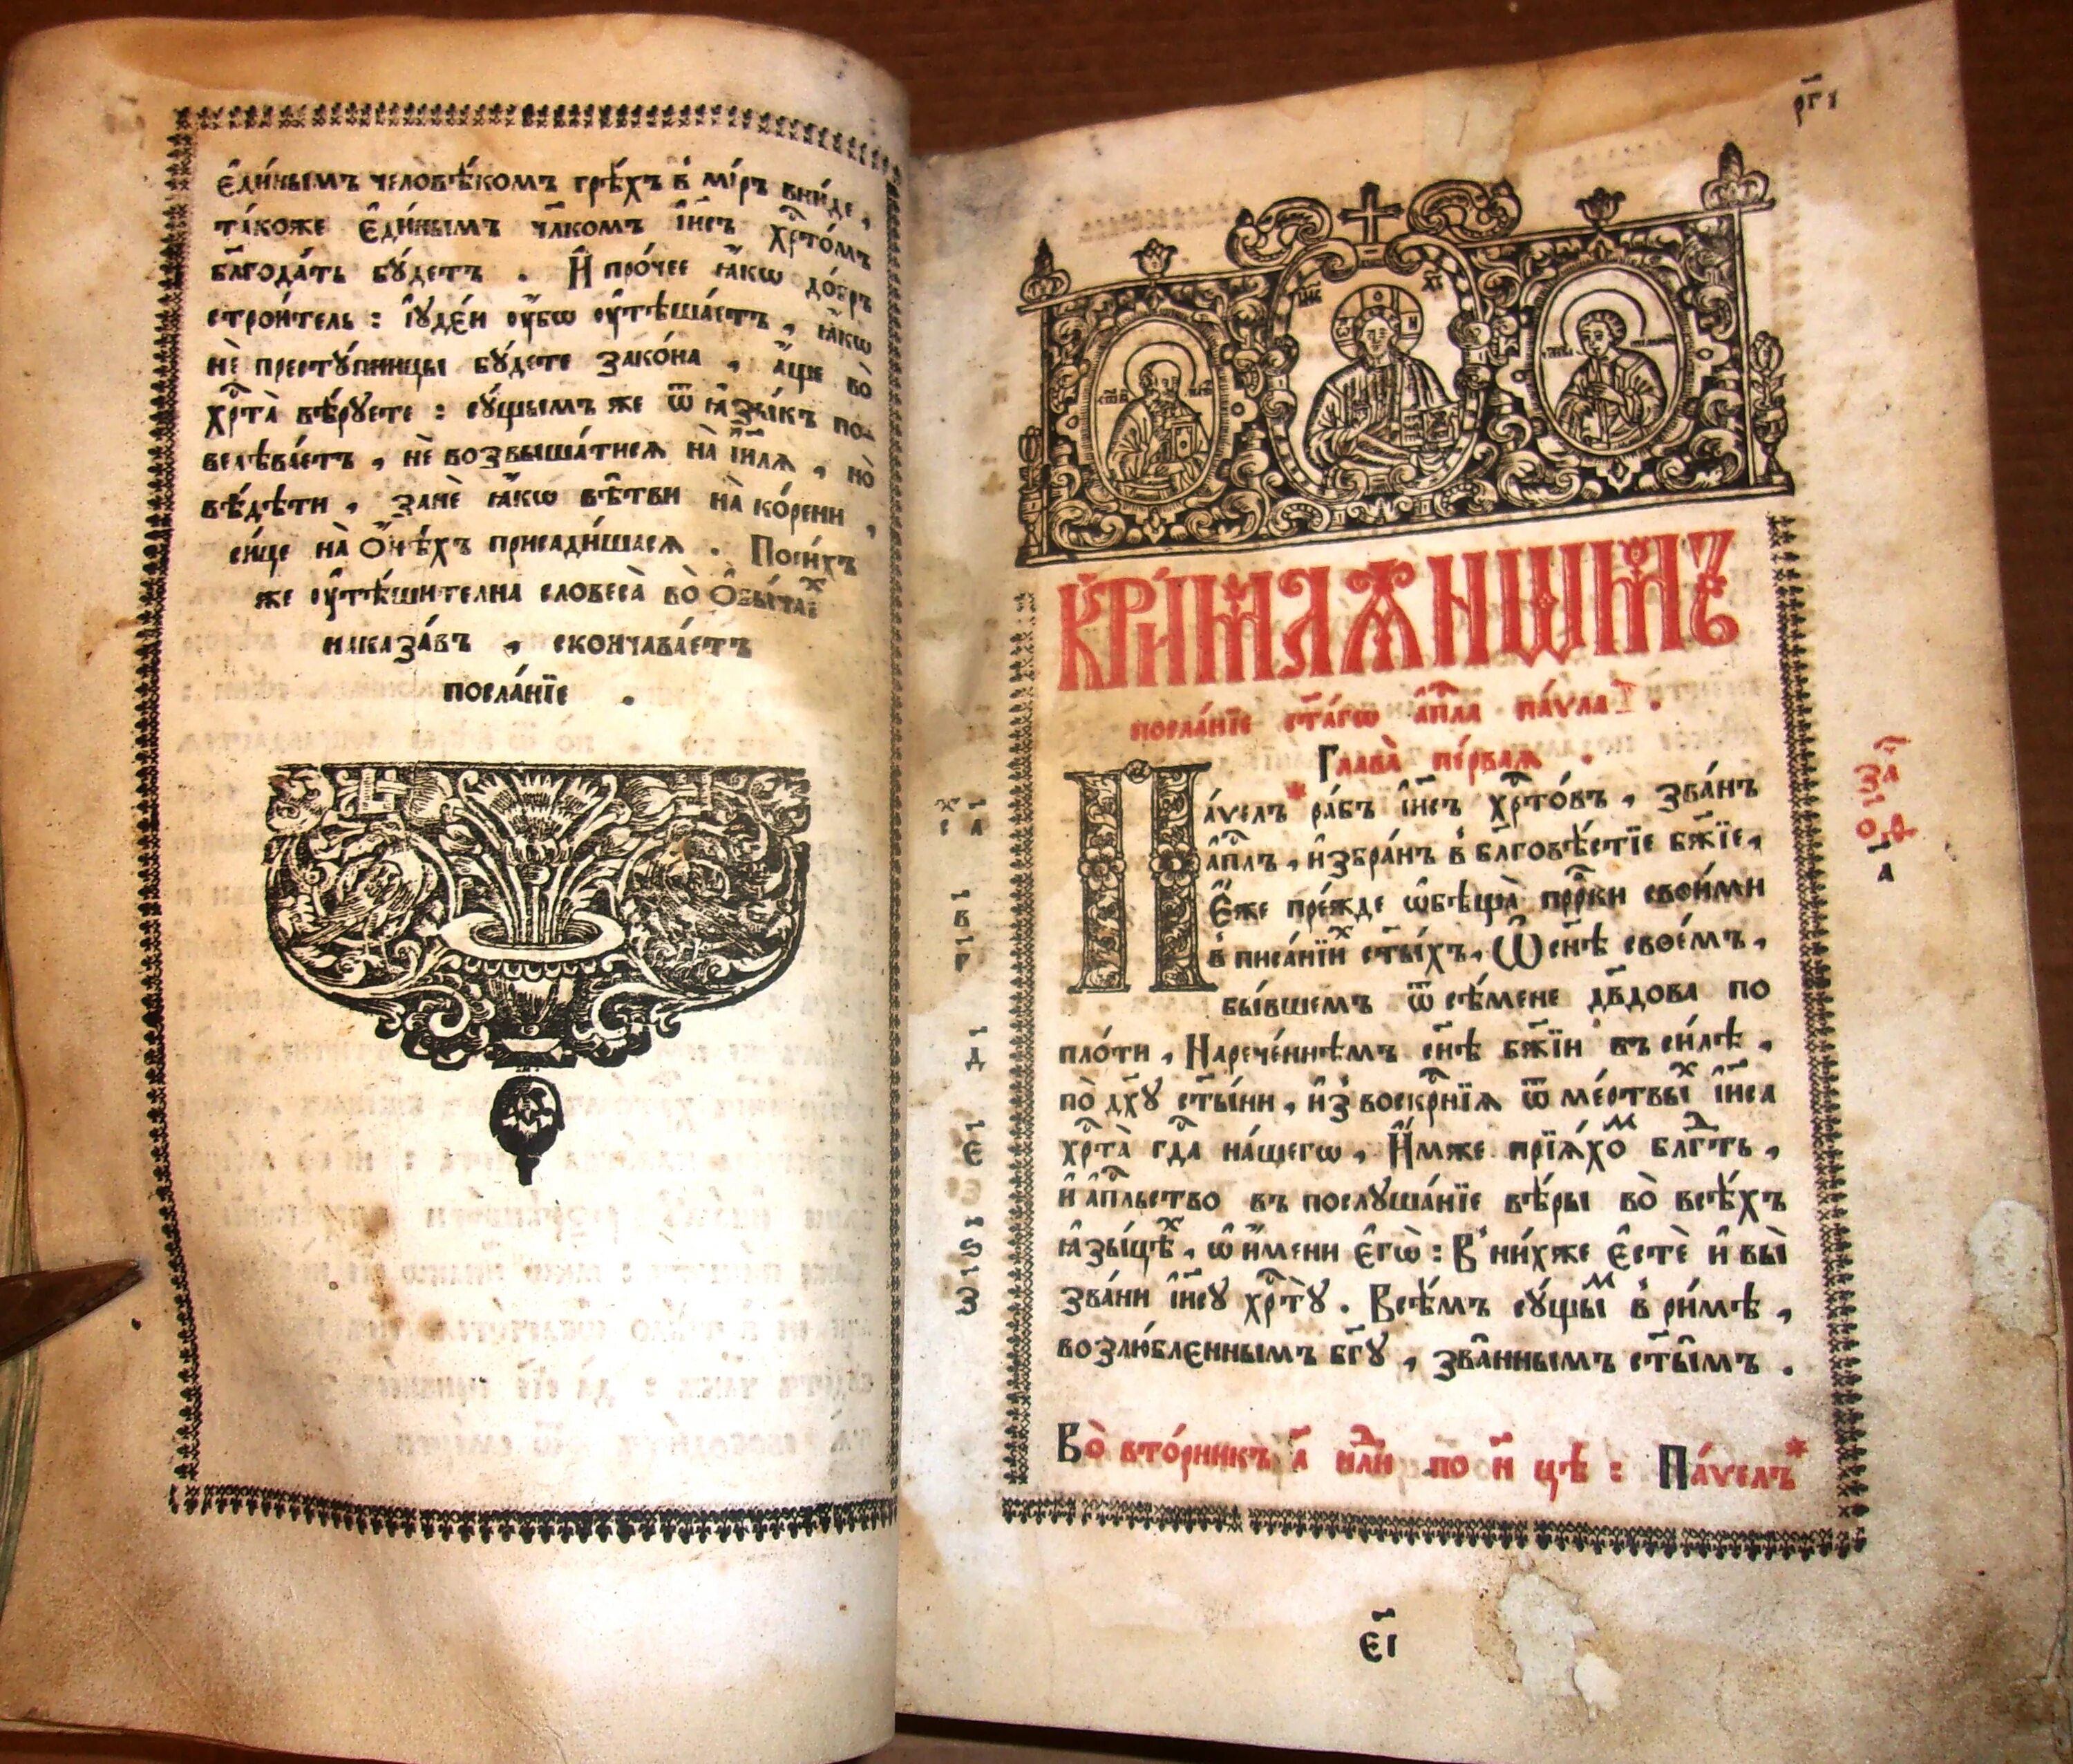 є҆ди́нымъ человѣ́комъ грѣ́хъ в̾ мі́ръ вни́де ,
та́коже є҆ди́нымъ чл҃комъ і҆и҃съ хрⷭ҇то́мъ
бл҃года́ть бу́детъ . И҆ про́чее ꙗ҆́кѡ до́бръ
строи́тель : і҆уде́и ѹ҆́бѡ ѹ҆тѣша́етъ , ꙗ҆́кѡ
нѐ престу́пницы бу́дете зако́на , а҆́ще во̀
хрⷭ҇та̀ вѣ́руете : су́щымъ же ѿ ꙗ҆зы́къ по-
велѣва́етъ , нѐ возвыша́тисѧ на̀ і҆и҃лѧ , но̀
вѣ́дѣти , занѐ ꙗ҆́кѡ вѣ̑тви на̀ ко́рени ,
си́це на̀ ѻ҆́нѣхъ присади́шасѧ . Поси́хъ
же ѹ҆тѣ́шителна словеса̀ во̀ ѻ҆бы́чаеⷯ
наказа́въ , сконча́ваетъ
посла́нїе .
рг҃і
і҆и҃с х҃с
ѡ о н
КРИ́МЛѦНѠМЪ
посла́нїе ст҃а́гѡ а҆пⷭ҇ла па́ѵла .
Глава̀ пе́рваѧ .
Па́ѵелъ * ра́бъ і҆и҃съ хрⷭ҇то́въ , зва́нъ
а҆пⷭ҇лъ , и҆збра́нъ в̾ бл҃говѣ́стїе бж҃їе ,
Є҆́же пре́жде ѡ҆бѣща̀ прⷪ҇ки свои́ми
в̾ писа́нїиⷯ ст҃ы́хъ , Ѿ сн҃ѣ своє́мъ ,
бы́вшемъ ѿ сѣ́мене дв҃дова по
пло́ти , Нарече́ннѣмъ сн҃ѣ бж҃їи въ си́лѣ ,
по̀ дх҃у ст҃ы́ни , и҆з̾ воскрⷭ҇нїѧ ѿ ме́ртвыⷯ і҆и҃са
хрⷭ҇та̀ гдⷭ҇а на́шегѡ , И҆́мже прїѧ́хоⷨ бл҃гⷣть ,
и҆ а҆пⷭ҇льство въ послуша́нїе вѣ́ры во̀ всѣ́хъ
ꙗ҆зы́цѣⷯ , ѡ҆ и҆́мени є҆гѡ̀ : В̾ ни́хже є҆стѐ и҆ вы̀
зва́ни і҆и҃су хрⷭ҇ту̀ . Всѣ́мъ су́щыⷨ в̾ ри́мѣ ,
возлю́бленнымъ бг҃у , зва̑ннымъ ст҃ы̑мъ .
Во̀ вто́рникъ а҃ нⷣли по н҃ цѣ : Па́ѵелъ *
за҃
о҃ѳ
а҃
а҃
в҃
г҃
д҃
є҃
ѕ҃
з҃
є҃і